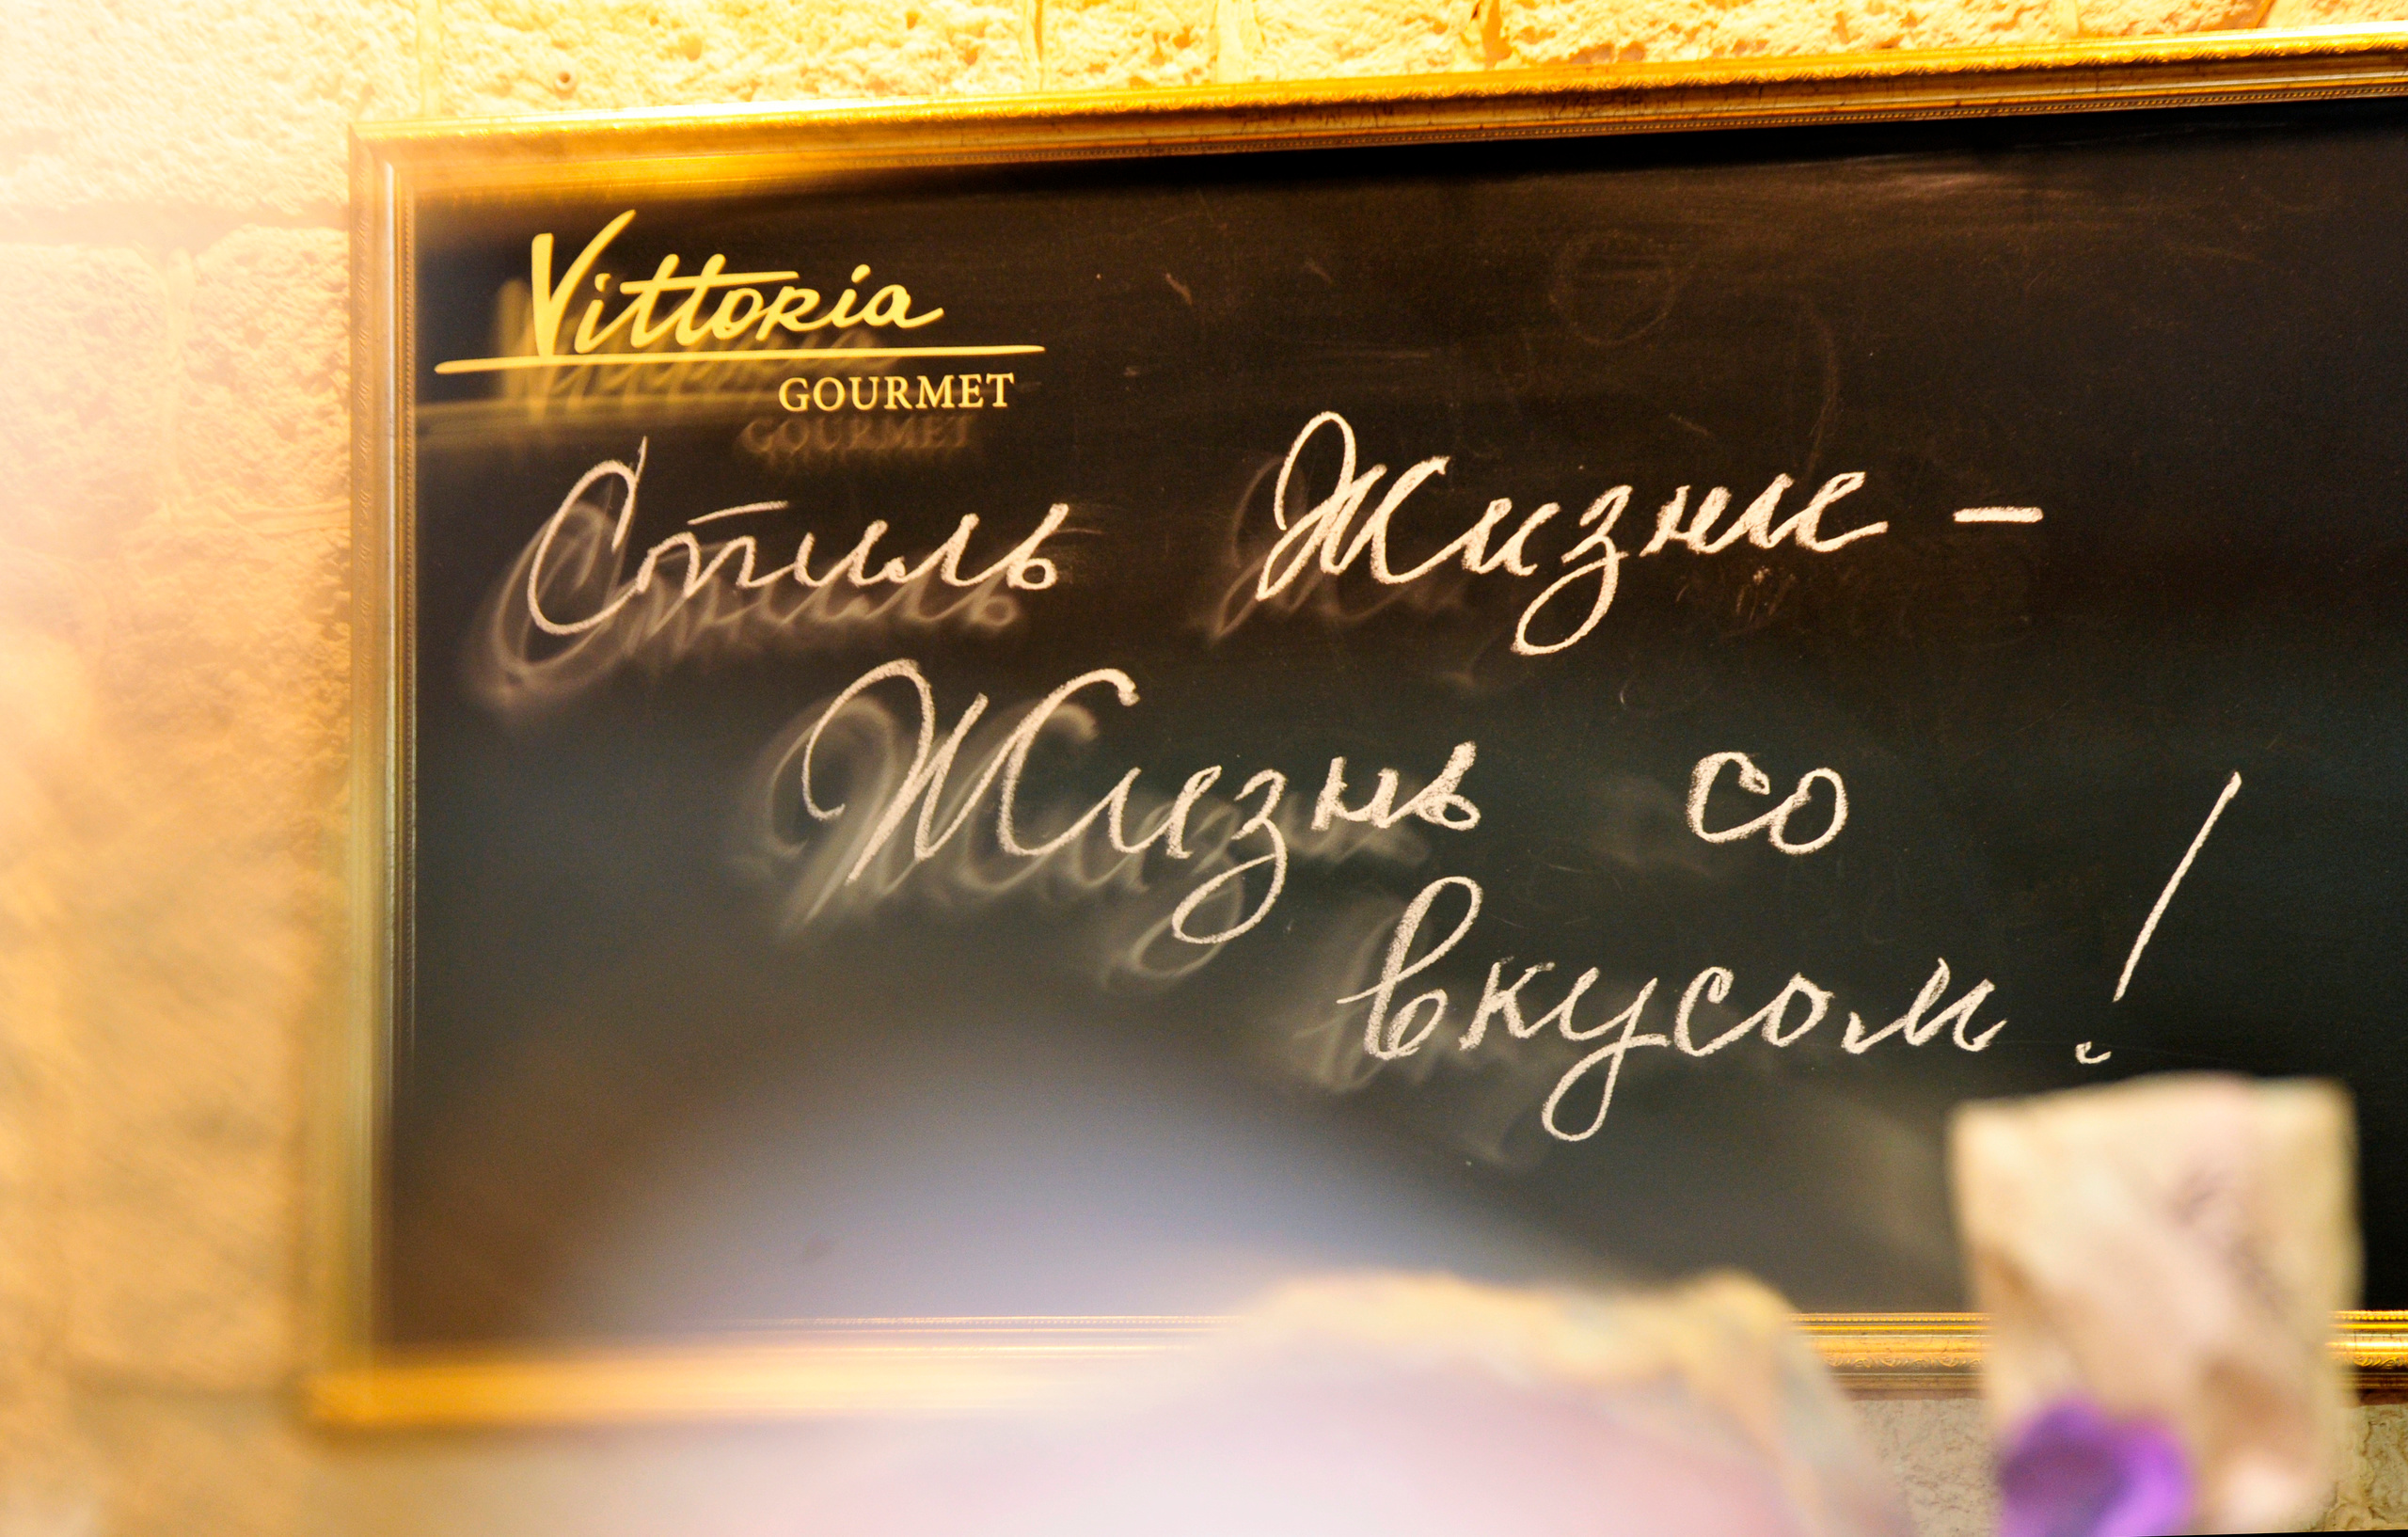 Vittoria
GOURMET
Стиль Жизни -
Жизнь со
вкусом!